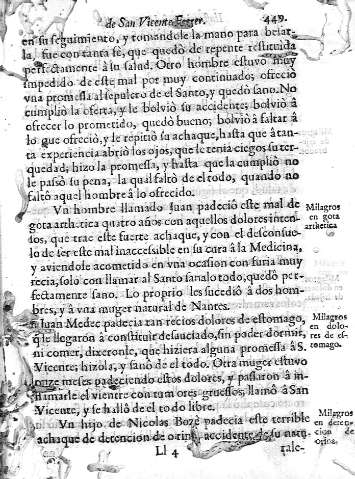 de San Vicente Ferrer. 449.
en su seguimiento, y tomandole la mano para besar-
la, fue con tanta fé, que quedò de repente restituida
perfectamente à su salud. Otro hombre estuvo muy
impedido de este mal por muy continuado; ofreciò
vna promessa al sepulcro de el Santo, y quedò sano. No
cumpliò la oferta, y le bolviò su accidente; bolviò à
ofrecer lo prometido, quedò bueno; bolviò à faltar à
lo que ofreciò, y le repitiò su achaque, hasta que à tan-
ta experiencia abriò los ojos, que le tenia ciegos su ter-
quedad; hizo la promessa, y hasta que la cumpliò no
le passò su pena, la qual faltò de el todo, quando no
faltò aquel hombre à lo ofrecido.
Vn hombre llamado Juan padeciò este mal de
gota arthetica quatro años con aquellos dolores inten-
sos, que trae este fuerte achaque, y con el desconsue-
lo de ser este mal inaccessible en su cura à la Medicina,
y aviendole acometido en vna ocasion con furia muy
recia, solo con llamar al Santo sanalo todo, quedò per-
fectamente sano. Lo proprio les sucediò à dos hom-
bres, y à vna muger natural de Nantes.
Juan Medec padecia tan recios dolores de estomago,
q̃ le llegaron à constituir desauciado, sin poder dormir,
ni comer, dixeronle, que hiziera alguna promessa à S.
Vicente; hizola, y sanò de el todo. Otra muger estuvo
onze meses padeciendo estos dolores, y passaron à in-
flamarle el vientre con tumores gruessos, llamò à San
Vicente, y se hallò de el todo libre.
Vn hijo de Nicolas Bozè padecia este terrible
achaque de detencion de orina, accidente de su natu-
Ll 4 rale-
Milagros
en gota
arthetica
Milagros
en dolo-
res de es-
tomago.
Milagros
en deten-
cion de
orina.